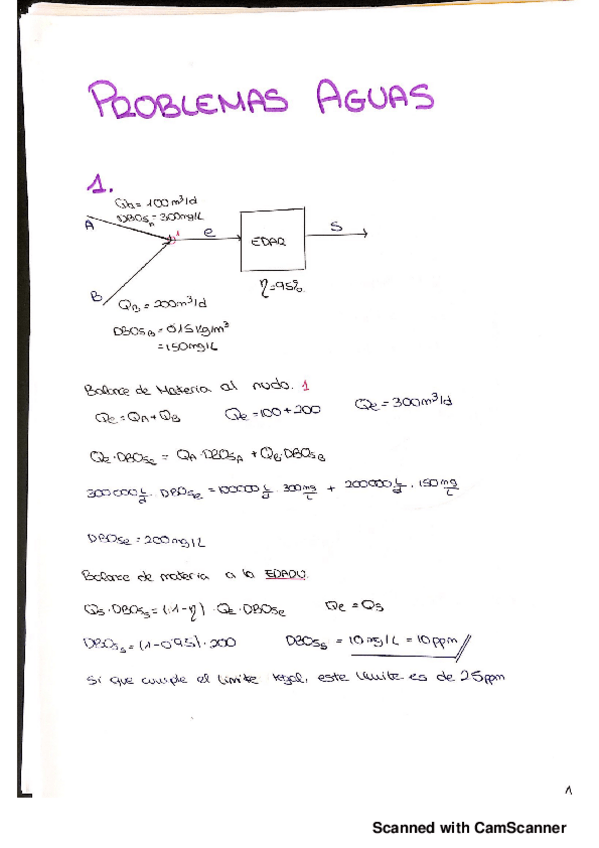 PROBLEMAS AGUAS
1.
QA = 100 m³/d
DBO5A = 300mg/L
A
1
e
EDAR
S
η=95%
B
QB = 200m³/d
DBO5B = 0'15 kg/m³
= 150mg/L
Balance de Materia al nudo. 1
Qe = QA + QB Qe = 100+200 Qe = 300m³/d
Qe·DBO5e = QA·DBO5A + QB·DBO5B
300000 L/d · DBO5e = 100000 L/d · 300 mg/L + 200000 L/d · 150 mg/L
DBO5e = 200mg/L
Balance de materia a la
Qs·DBO5s = (1-η)·Qe·DBO5e Qe = Qs
DBO5s = (1-0'95)·200 DBO5s = 10 mg/L = 10ppm
Si que cumple el límite legal, este límite es de 25ppm
1
Scanned with CamScanner